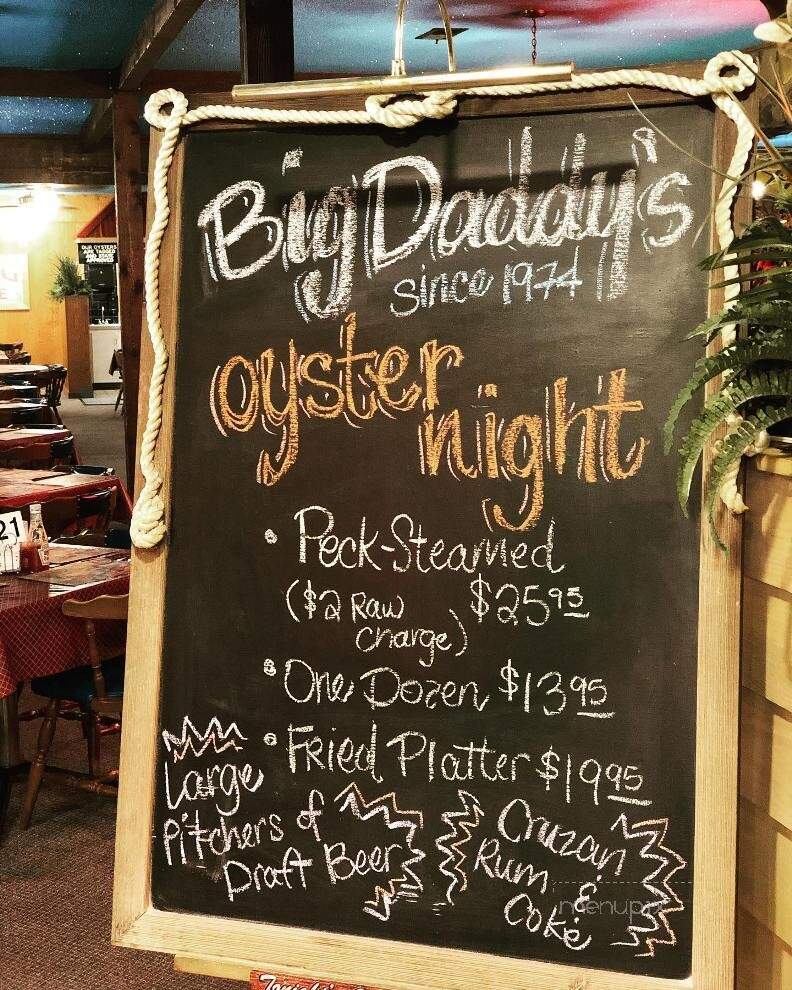 Big Daddy's
since 1974
oyster
night
• Peck-Steamed
($2 Raw charge) $25.95
• One Dozen $13.95
• Fried Platter $19.95
Large
Pitchers of
Draft Beer
Cruzan
Rum &
Coke
OUR OYSTERS
ARE TAGGED
AND STATE
APPROVED
21
Tonight's